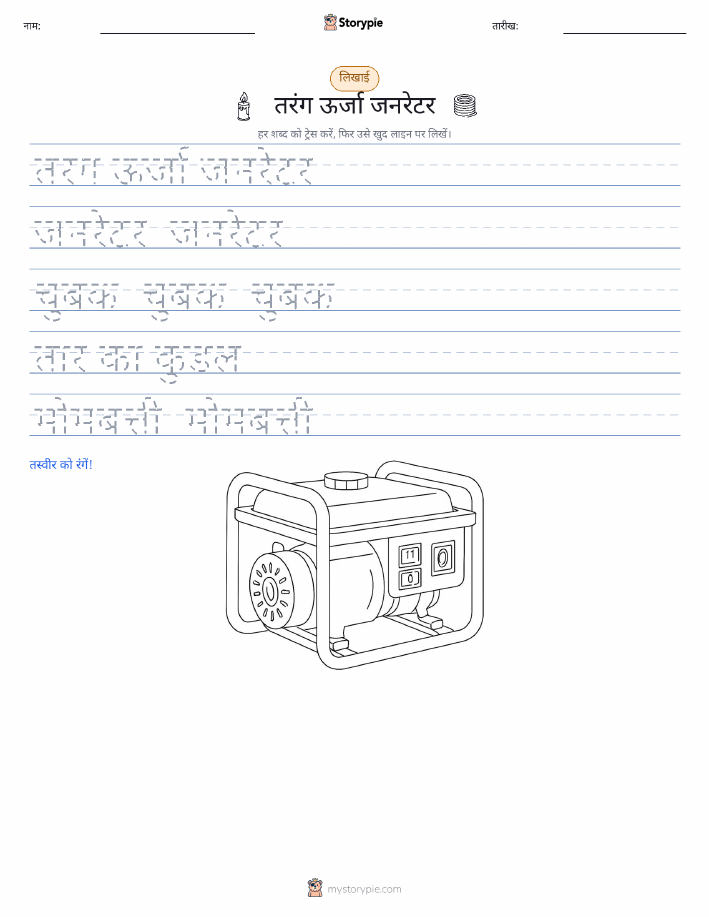 नाम:
Storypie
तारीख:
लिखाई
तरंग ऊर्जा जनरेटर
हर शब्द को ट्रेस करें, फिर उसे खुद लाइन पर लिखें।
तरग ऊर्जा जनरेटर
जनरेटर जनरेटर
चुबक चुबक चुबक
तार का कुडल
मोमबत्ती मोमबत्ती
तस्वीर को रंगें!
11
0
0
mystorypie.com